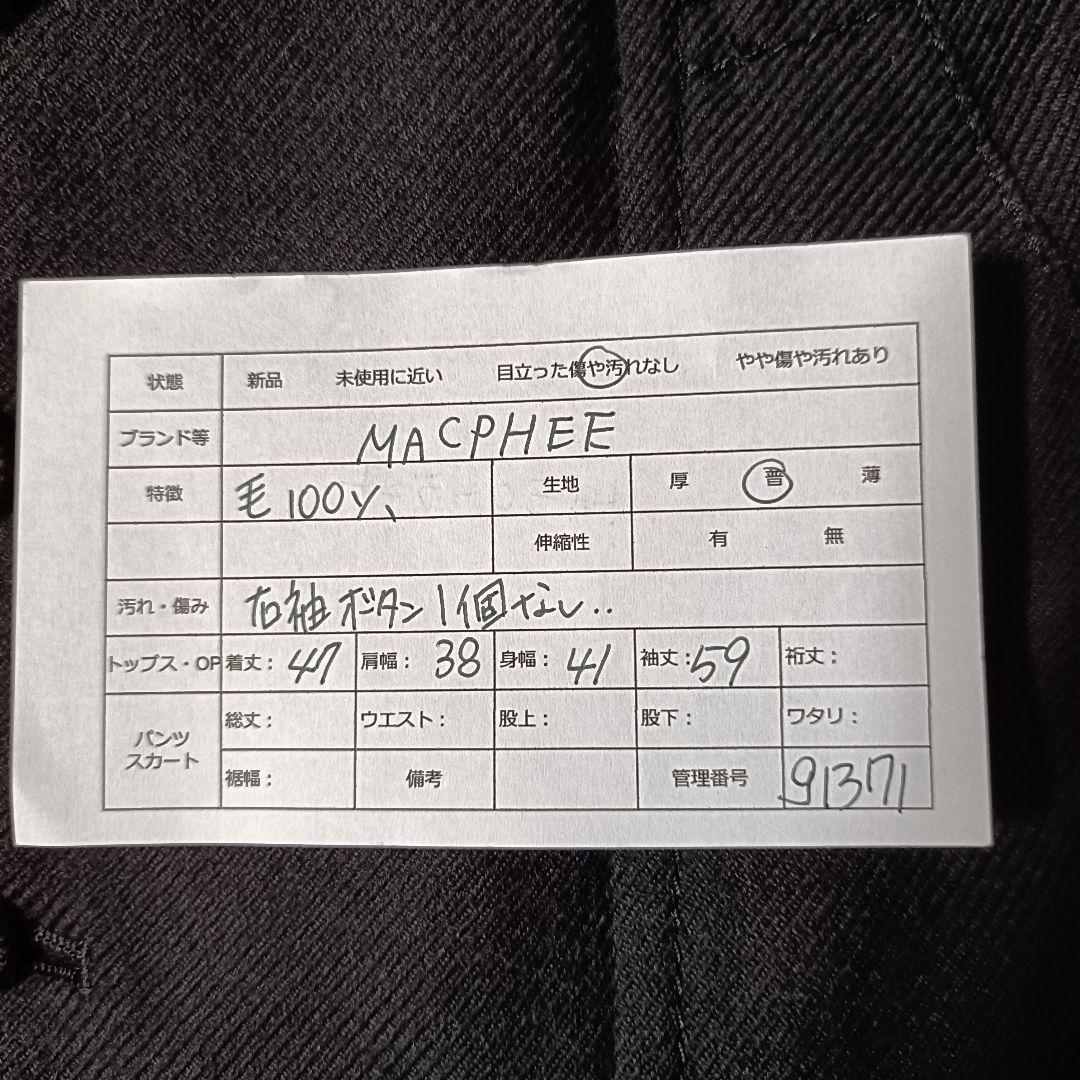 状態 新品 未使用に近い 目立った傷や汚れなし やや傷や汚れあり
ブランド等 MACPHEE
特徴 毛100% 生地 厚 普 薄
伸縮性 有 無
汚れ・傷み 右袖ボタン1個なし..
トップス・OP 着丈: 47 肩幅: 38 身幅: 41 袖丈: 59 裄丈:
パンツ スカート 総丈: ウエスト: 股上: 股下: ワタリ:
裾幅: 備考 管理番号 91371